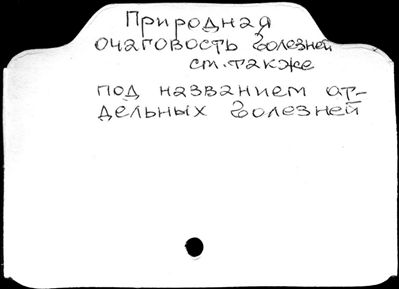 Природная
очаговость болезней
см. также
под названием от-
дельных болезней